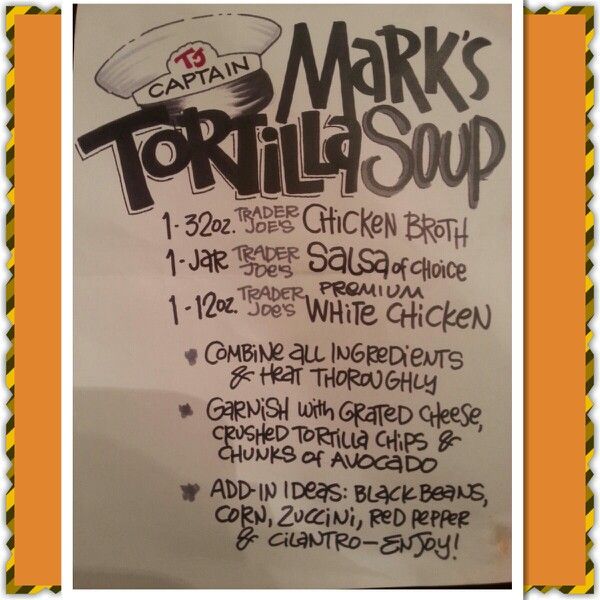 TJ
CAPTAIN
MARK'S
TORTILLA SOUP
1-32oz. TRADER JOE'S CHICKEN BROTH
1-JAR TRADER JOE'S SALSA of CHOICE
1-12oz. TRADER JOE'S PREMIUM WHITE CHICKEN
COMBINE ALL INGREDIENTS
& HEAT THOROUGHLY
GARNISH with GRATED CHEESE,
CRUSHED TORTILLA CHIPS &
CHUNKS of AVOCADO
ADD-IN IDEAS: BLACK BEANS,
CORN, ZUCCINI, RED PEPPER
& CILANTRO-ENJOY!